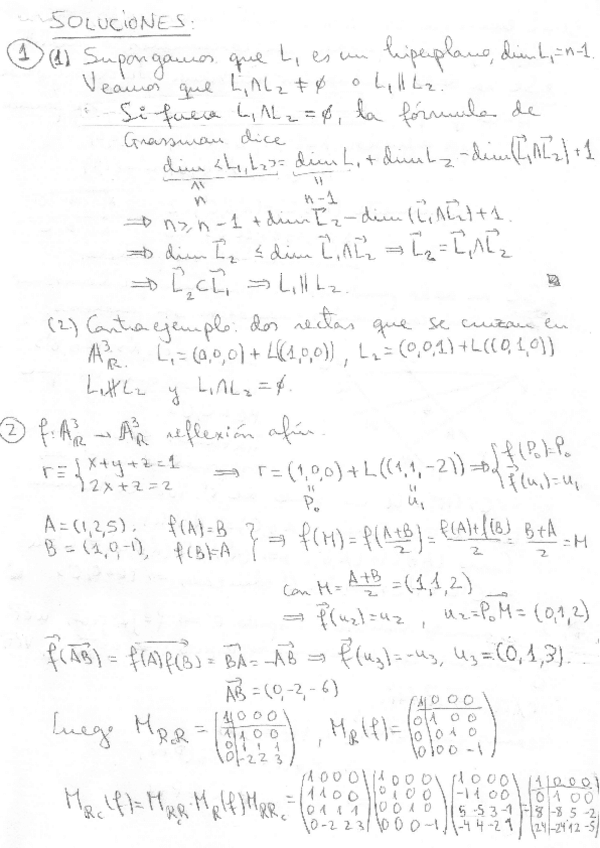 SOLUCIONES:
① (1) Supongamos que L₁ es un hiperplano, dim L₁=n-1.
Veamos que L₁∩L₂ ≠ ∅ o L₁∥L₂.
Si fuera L₁∩L₂ = ∅, la fórmula de
Grassman dice
dim <L₁,L₂> = dim L₁ + dim L₂ - dim(L⃗₁∩L⃗₂)+1
n n-1
⇒ n ≥ n-1 + dim L⃗₂ - dim(L⃗₁∩L⃗₂)+1.
⇒ dim L⃗₂ ≤ dim L⃗₁∩L⃗₂ ⇒ L⃗₂ = L⃗₁∩L⃗₂
⇒ L⃗₂⊂L⃗₁ ⇒ L₁∥L₂.
(2) Contraejemplo: dos rectas que se cruzan en
A³_R. L₁=(0,0,0)+L((1,0,0)), L₂=(0,0,1)+L((0,1,0))
L₁∦L₂ y L₁∩L₂=∅.
② f: A³_R → A³_R reflexión afín.
r≡{x+y+z=1 2x+z=2 ⇒ r=(1,0,0)+L((1,1,-2)) ⇒ {f(P₀)=P₀ f⃗(u₁)=u₁
P₀ u₁
A=(1,2,5). f(A)=B
B=(1,0,-1), f(B)=A } ⇒ f(M)=f(A+B/2)=f(A)+f(B)/2=B+A/2=M
con M=A+B/2=(1,1,2)
⇒ f⃗(u₂)=u₂, u₂=P₀M=(0,1,2)
f⃗(AB)=f(A)f(B)=BA=-AB ⇒ f⃗(u₃)=-u₃, u₃=(0,1,3).
AB=(0,-2,-6)
Luego M_{R_cR}=(1 0 0 0; 1 1 0 0; 0 1 1 1; 0 -2 2 3), M_R(f)=(1 0 0 0; 0 1 0 0; 0 0 1 0; 0 0 0 -1)
M_{R_c}(f)=M_{R_cR}·M_R(f)M_{RR_c}=(1 0 0 0; 1 1 0 0; 0 1 1 1; 0 -2 2 3)(1 0 0 0; 0 1 0 0; 0 0 1 0; 0 0 0 -1)(1 0 0 0; -1 1 0 0; 5 -5 3 -1; -4 4 -2 1)=(1 0 0 0; 0 1 0 0; 8 -8 5 -2; 24 -24 12 -5)